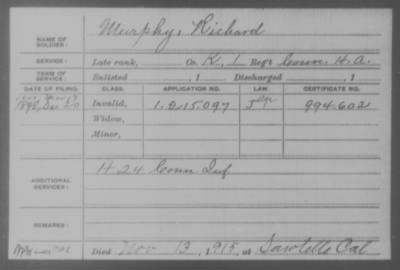 NAME OF SOLDIER: Murphy, Richard
SERVICE: Late rank, Co. K, 1 Reg't Conn. H. A.
TERM OF SERVICE: Enlisted , 1 Discharged , 1
DATE OF FILING. CLASS. APPLICATION NO. LAW. CERTIFICATE NO.
Invalid, 1.215.097 994602
Widow,
Minor,
ADDITIONAL SERVICES: H 24 Conn Inf
REMARKS:
Died Nov 13, 1915, at Sawtelle Cal